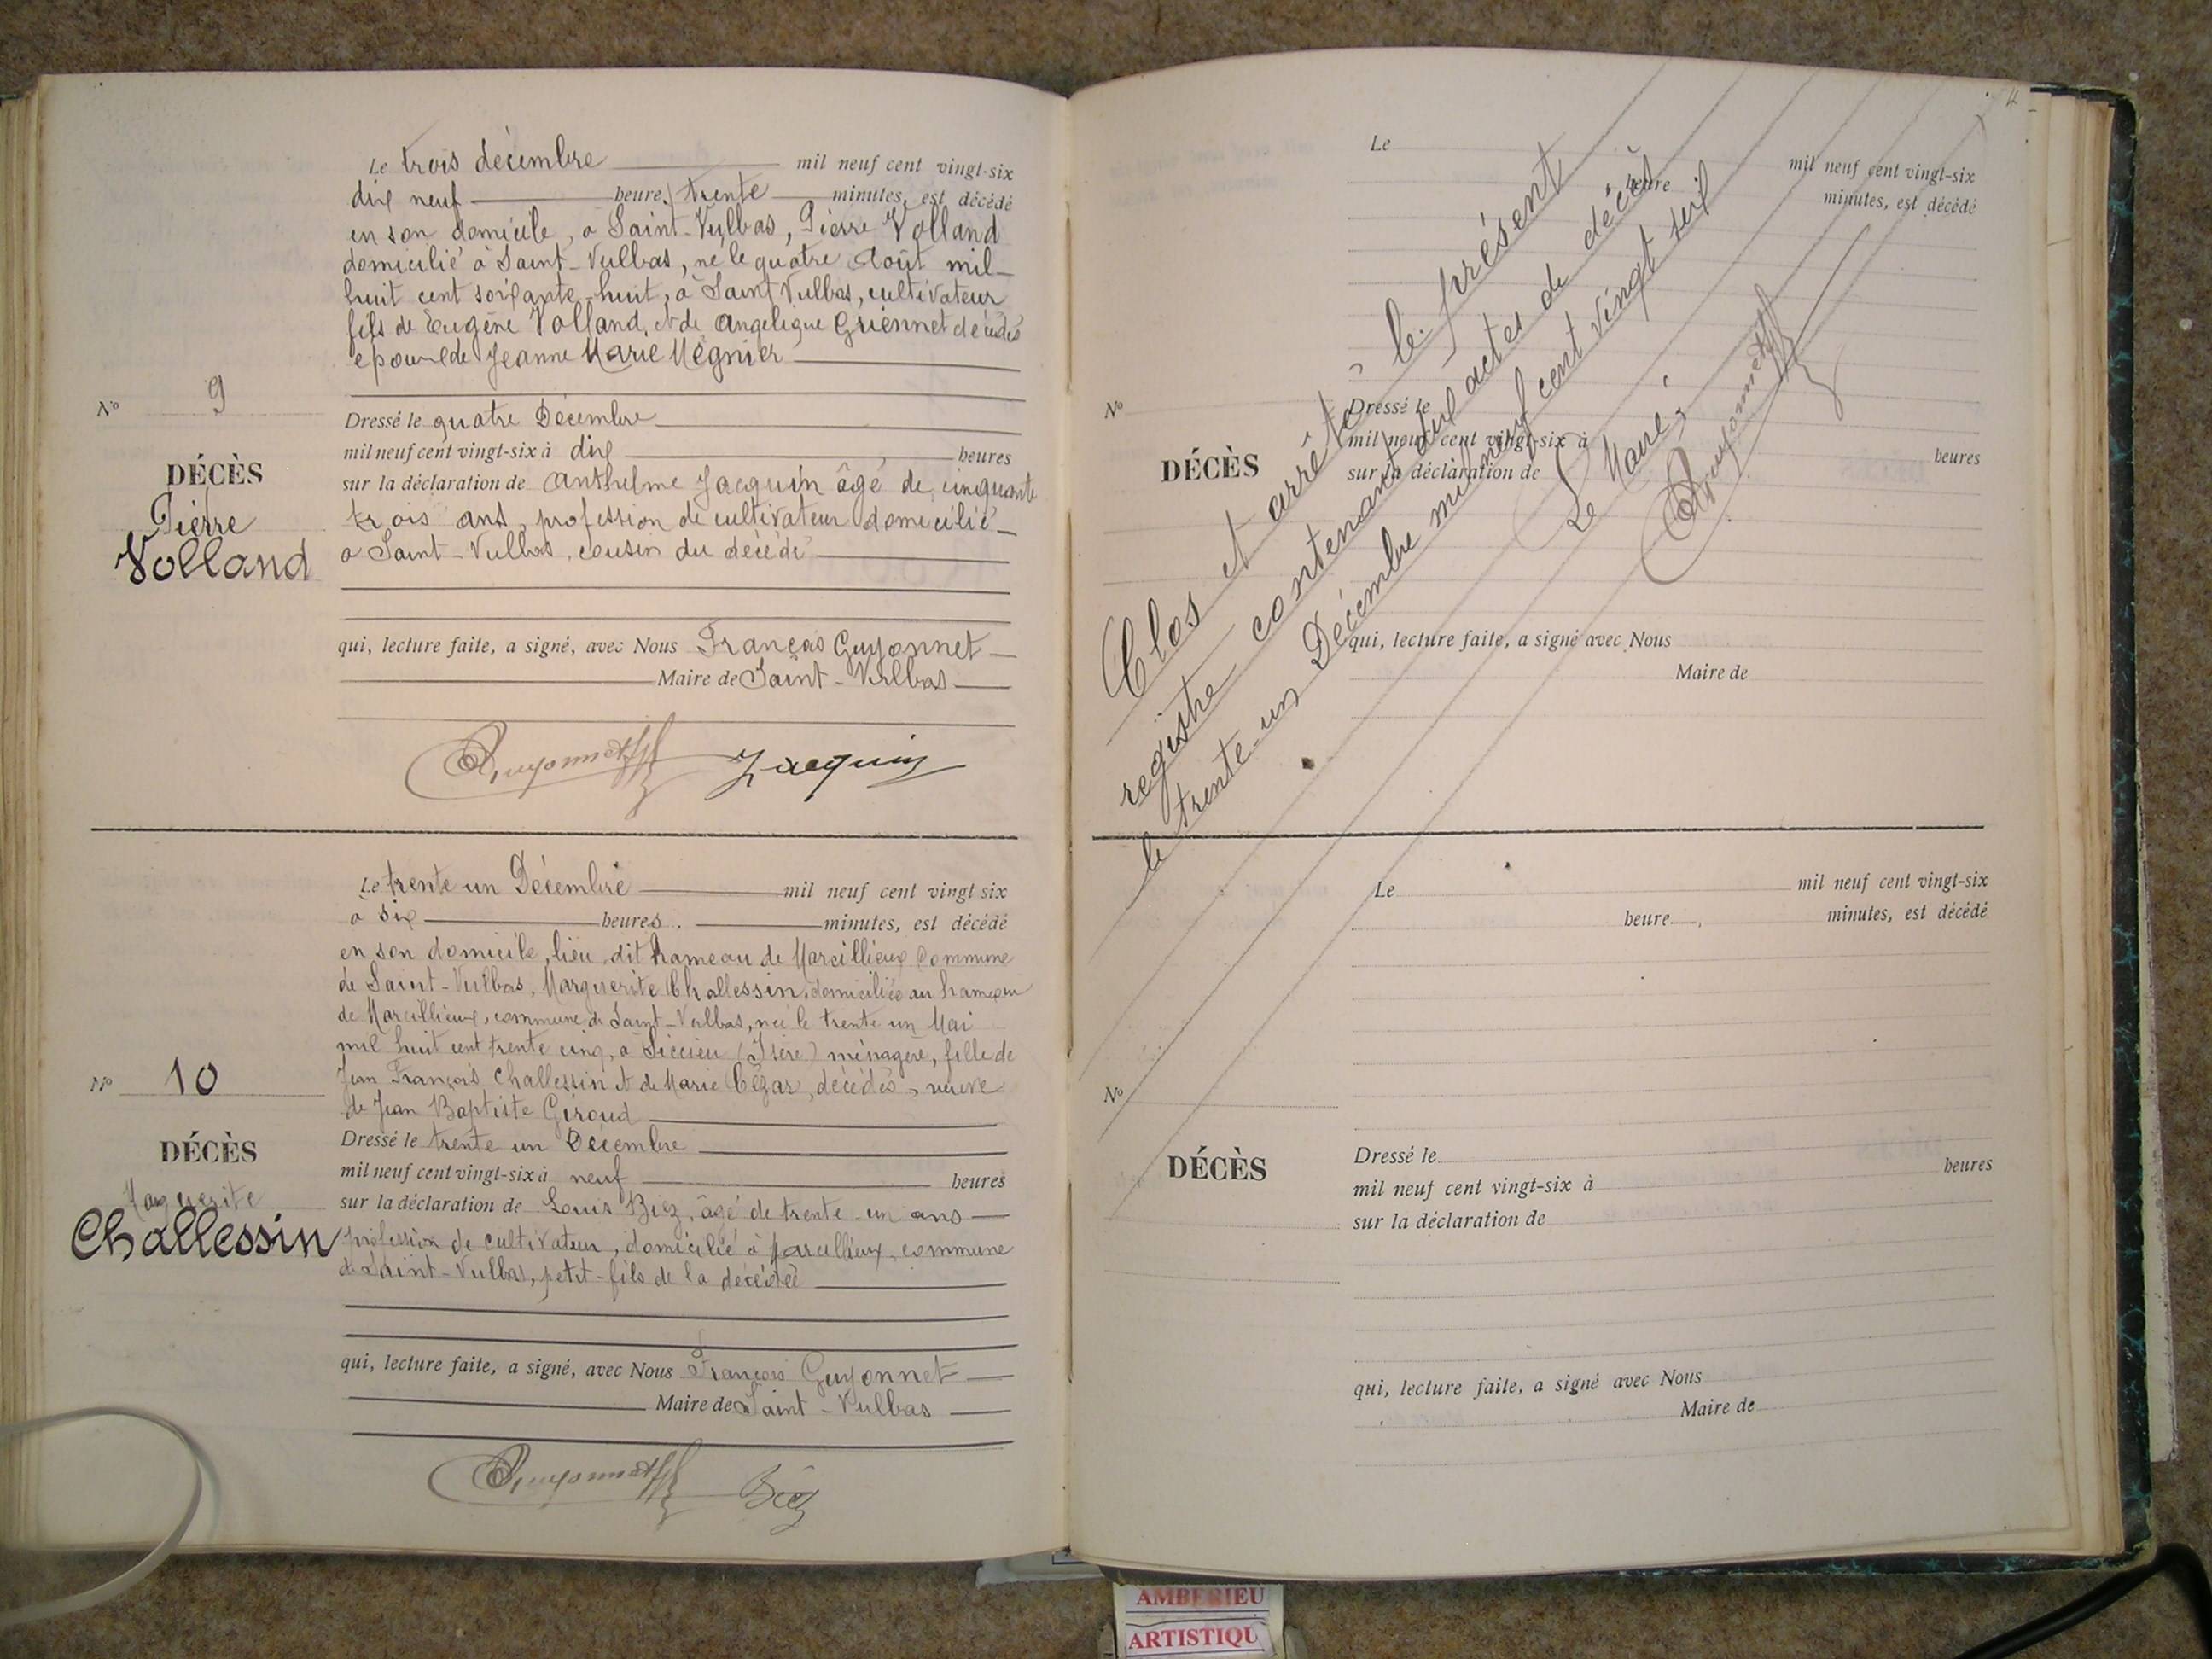 Le trois décembre mil neuf cent vingt-six
dix neuf heure, trente minutes, est décédé
en son domicile, a Saint-Vulbas, Pierre Volland
domicilié à Saint-Vulbas, né le quatre Août mil
huit cent soixante-huit, à Saint Vulbas, cultivateur
fils de Eugène Volland, et de Angelique Griennet décédés
epoux de Jeanne Marie Mégnier
Nº 9
DÉCÈS
Pierre
Volland
Dressé le quatre Décembre
mil neuf cent vingt-six à dix heures
sur la déclaration de Anthelme Jacquin âgé de cinquante
trois ans, profession de cultivateur domicilié
a Saint-Vulbas, cousin du décédé
qui, lecture faite, a signé, avec Nous François Guyonnet
Maire de Saint-Vulbas
Guyonnet Jacquin
Le trente un Décembre mil neuf cent vingt six
à six heures. minutes, est décédé
en son domicile, lieu dit hameau de Marcillieux Commune
de Saint-Vulbas, Marguerite Challessin, domiciliée au hameau
de Marcillieux, commune de Saint-Vulbas, née le trente un Mai
mil huit cent trente cinq, a Siccieu (Isère) ménagère, fille de
Jean François Challessin et de Marie Cézar, décédés, veuve
de Jean Baptiste Giroud
Nº 10
DÉCÈS
Marguerite
Challessin
Dressé le trente un Décembre
mil neuf cent vingt-six à neuf heures
sur la déclaration de Louis Biez, âgé de trente un ans
profession de cultivateur, domicilié à Marcillieux, commune
de Saint-Vulbas, petit-fils de la décédée
qui, lecture faite, a signé, avec Nous François Guyonnet
Maire de Saint-Vulbas
Guyonnet Biez
Le mil neuf cent vingt-six
heure minutes, est décédé
Nº
DÉCÈS
Dressé le
mil neuf cent vingt-six à heures
sur la déclaration de
qui, lecture faite, a signé avec Nous
Maire de
Clos et arrêté le présent
registre contenant dix actes de décès
le trente-un Décembre mil neuf cent vingt six
Le Maire,
Guyonnet
Le mil neuf cent vingt-six
heure, minutes, est décédé
Nº
DÉCÈS
Dressé le
mil neuf cent vingt-six à heures
sur la déclaration de
qui, lecture faite, a signé avec Nous
Maire de
AMBERIEU
ARTISTIQU